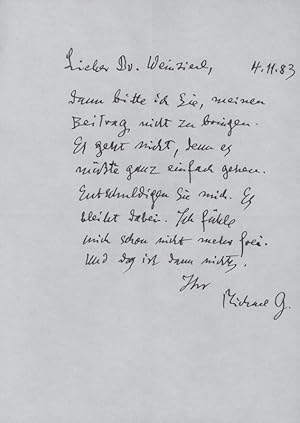 Lieber Dr. Weinzierl, 4.11.83
dann bitte ich Sie, meinen
Beitrag, nicht zu bringen.
Es geht nicht, denn es
müßte ganz einfach gehen.
Entschuldigen Sie mich. Es
bleibt dabei. Ich fühle
mich schon nicht mehr frei.
Und das ist dann nichts.
Ihr
Michael G.